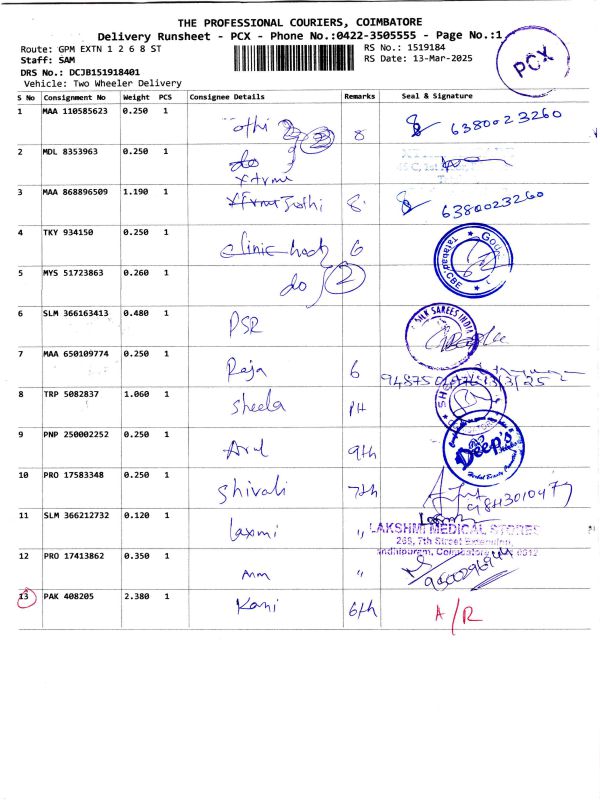 THE PROFESSIONAL COURIERS, COIMBATORE
Delivery Runsheet - PCX - Phone No.:0422-3505555 - Page No.:1
Route: GPM EXTN 1 2 6 8 ST
RS No.: 1519184
Staff: SAM
RS Date: 13-Mar-2025
DRS No.: DCJB151918401
Vehicle: Two Wheeler Delivery
PCX
S No Consignment No Weight PCS Consignee Details Remarks Seal & Signature
1 MAA 110585623 0.250 1 2 8 6380023260
2 MDL 8353963 0.250 1 do
3 MAA 868896509 1.190 1 Jothi 8 6380023260
4 TKY 934150 0.250 1 clinic 6
Tatabad CBE
5 MYS 51723863 0.260 1 do 2
6 SLM 366163413 0.480 1 PSR
SILK SAREES INDIA
7 MAA 650109774 0.250 1 Raja 6
8 TRP 5082837 1.060 1 Sheela PH
9 PNP 250002252 0.250 1 Arul 9th
Deep's
10 PRO 17583348 0.250 1 Shivali 7th 9843010479
11 SLM 366212732 0.120 1 Laxmi "
LAKSHMI MEDICAL STORES
268, 7th Street Extension,
12 PRO 17413862 0.350 1 "
13 PAK 408205 2.380 1 Kani 6th A/R